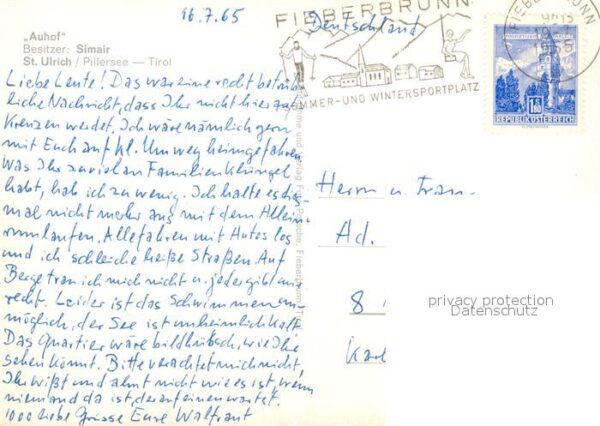 16.7.65
Deutschland
FIEBERBRUNN
SOMMER- UND WINTERSPORTPLATZ
FIEBERBRUNN
1.80
REPUBLIK ÖSTERREICH
„Auhof"
Besitzer: Simair
St. Ulrich / Pillersee — Tirol
Liebe Leute! Das war eine recht betrüb-
liche Nachricht, dass Ihr nicht hier auf
Kreuzen werdet. Ich wäre nämlich gern
mit Euch auf kl. Umweg heimgefahren.
Was Ihr zuviel an Familienklüngel
habt, hab ich zu wenig. Ich halte es dies
mal nicht mehr aus mit dem Allein
rumlaufen. Alle fahren mit Autos los
und ich schleiche heiße Straßen. Auf
Berge trau ich mich nicht u. jeder gibt mir
recht. Leider ist das Schwimmen un-
möglich, der See ist unheimlich kalt.
Das Quartier wäre bildhübsch, wie Ihr
sehen könnt. Bitte verachtet mich nicht,
Ihr wißt und ahnt nicht wie es ist, wenn
niemand da ist, der auf einen wartet.
1000 liebe Grüsse Eure Waltraut
Herrn u. Frau
Ad.
8
Karl
privacy protection
Datenschutz